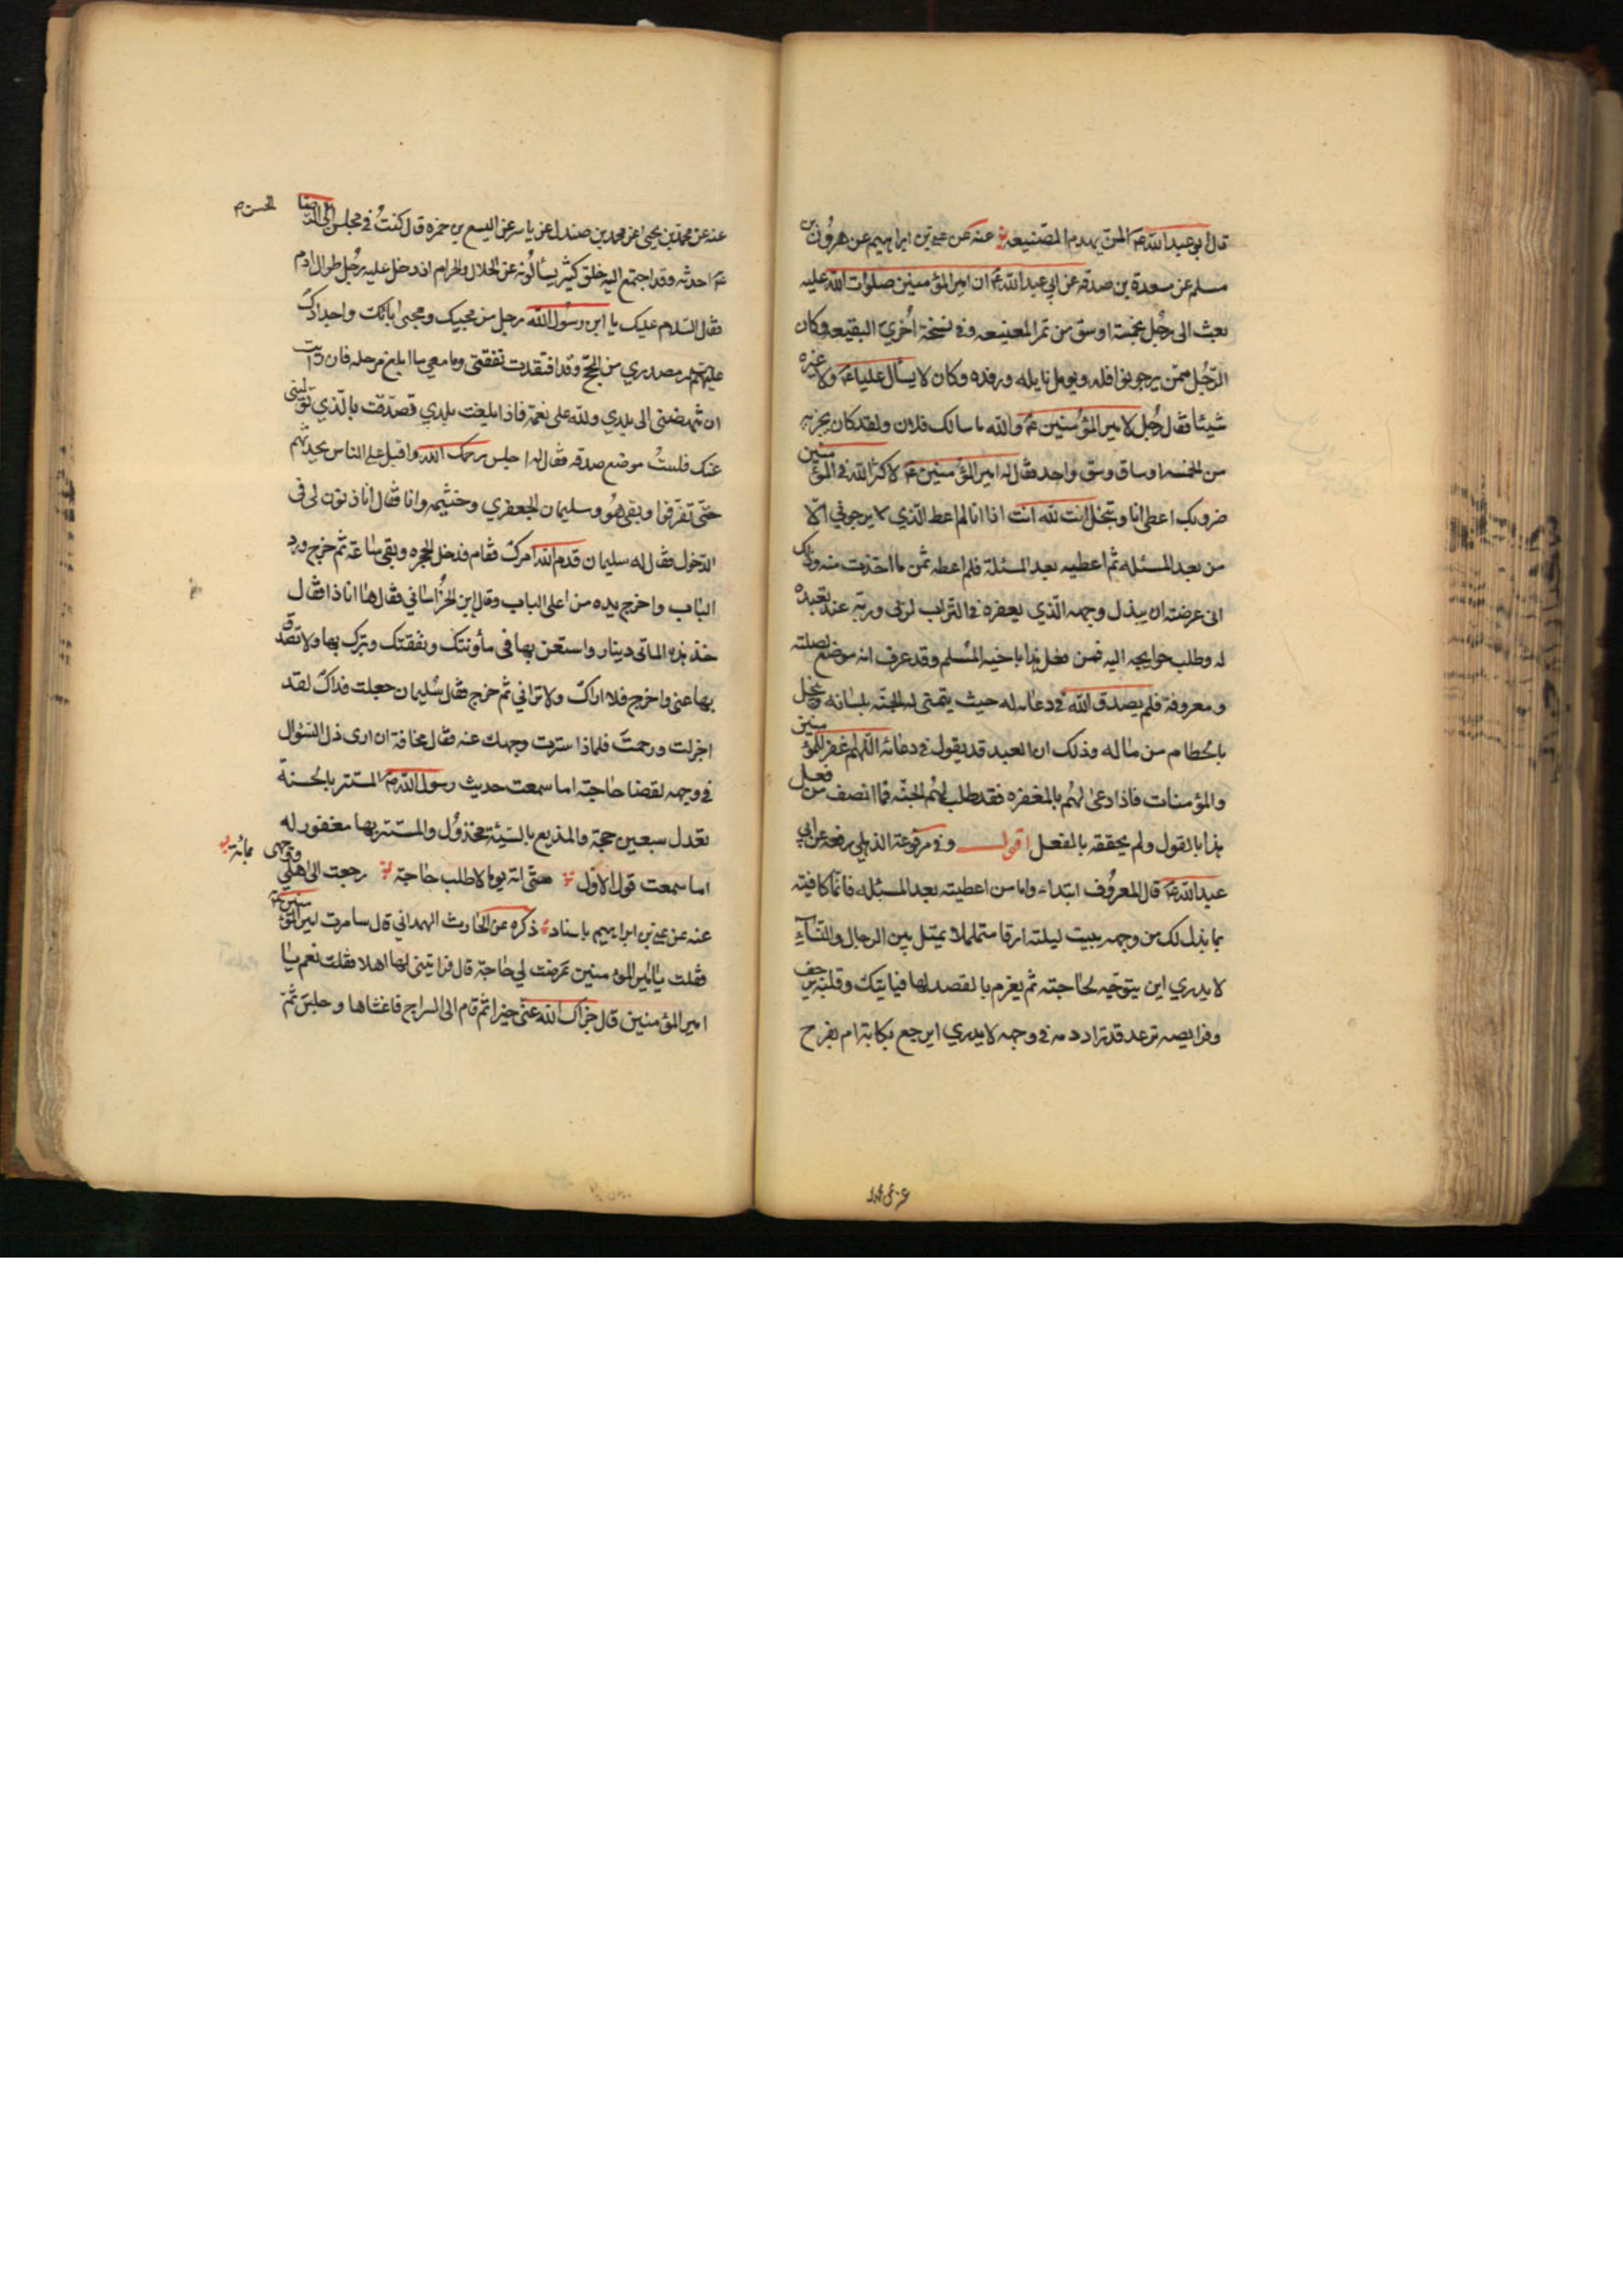 قال ابو عبد الله ع المن يهدم الصنيعه عنه عن علي بن ابراهيم عن هرون بن
مسلم عن مسعدة بن صدقه عن ابي عبد الله ع ان امير المؤمنين صلوات الله عليه
بعث الى رجل بخمسة اوسق من تمر المعنيعه وفي نسخة اخري البقيعه وكان
الرجل ممن يرجو نوافله ويومل نايله ورفده وكان لا يسأل عليا ع ولا غيره
شيئا فقال رجل لامير المؤمنين ع والله ما سالك فلان ولقد كان يجزيه
من الخمسه اوساق وسق واحد فقال له امير المؤمنين ع لا كثر الله في المؤمنين
ضربك اعطى انا وتبخل انت لله انت اذا انا لم اعط الذي لا يرجوني الا
من بعد المسئله ثم اعطيه بعد المسئلة فلم اعطه ثمن ما اخذت منه وذلك
انى عرضته ان يبذل وجهه الذي يعفره في التراب لربى وربه عند تعبده
له وطلب حوايجه اليه فمن فعل هذا باخيه المسلم وقد عرف انه موضع لصلته
ومعروفة فلم يصدق الله في دعائه له حيث يتمنى له الجنه بلسانه ويبخل
بالحطام من ماله وذلك ان العبد قد يقول في دعائه اللهم اغفر للمؤمنين
والمؤمنات فاذا دعى لهم بالمغفره فقد طلب لهم الجنه فما انصف من فعل
هذا بالقول ولم يحققه بالفعل اقول وفي مرفوعة الذهلي رفعه عن ابي
عبد الله ع قال المعروف ابتداء واما من اعطيته بعد المسئله فانما كافيته
بما بذل لك من وجهه يبيت ليلته ارقا متململا يمثل بين الرجاء والياس
لا يدري اين يتوجه لحاجته ثم يعزم بالقصد لها فياتيك وقلبه يرجف
وفرايصه ترعد قد ترا دمه في وجهه لا يدري ايرجع بكابة ام بفرح
عنه عن محمد بن يحيى عن محمد بن صندل عن ياسر عن اليسع بن حمزه قال كنت في مجلس ابي الحسن الرضا
ع احدثه وقد اجتمع اليه خلق كثير يسألونه عن الحلال والحرام اذ دخل عليه رجل طوال ادم
فقال السلام عليك يا ابن رسول الله رجل من محبيك ومحبى ابائك واجدادك
عليهم مصدري من الحج وقد افتقدت نفقتى وما معي ما ابلغ مرحله فان رايت
ان تنهضنى الى بلدي ولله على نعمة فاذا بلغت بلدي تصدقت بالذي توليني
عنك فلست موضع صدقه فقال له اجلس رحمك الله واقبل على الناس يحدثهم
حتى تفرقوا وبقى هو وسليمان الجعفري وخثيمه وانا فقال اتاذنون لى فى
الدخول فقال له سليمان قدم الله امرك فقام فدخل الحجره وبقى ساعة ثم خرج ورد
الباب واخرج يده من اعلى الباب وقال اين الخراساني فقال ها انا ذا فقال
خذ هذه الماتى دينار واستعن بها في مأونتك ونفقتك وتبرك بها ولا تصدق
بها عنى واخرج فلا اراك ولا ترانى ثم خرج فقال سليمان جعلت فداك لقد
اجزلت ورحمت فلماذا سترت وجهك عنه فقال مخافة ان ارى ذل السؤال
في وجهه لقضا حاجته اما سمعت حديث رسول الله ص المستتر بالحسنة
تعدل سبعين حجة والمذيع بالسيئة مخذول والمستتر بها مغفور له
اما سمعت قول الاول متى اته يوما لاطلب حاجة رجعت الى اهلي ووجهى بمائه
عنه عن علي بن ابراهيم باسناد ذكره عن الحارث الهمداني قال سامرت امير المؤمنين ع
فقلت يا امير المؤمنين عرضت لي حاجة قال فرايتنى لها اهلا فقلت نعم يا
امير المؤمنين قال جزاك الله عنى خيرا ثم قام الى السراج فاغشاها وجلس ثم